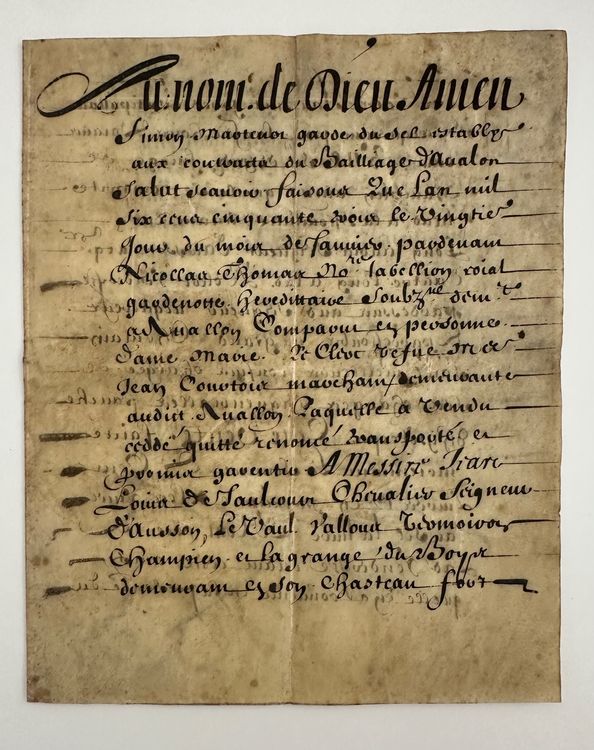 Au nom de Dieu Amen
Simon Martenot garde du Scel establys
aux contracts du Bailliage d'Avalon
Salut scavoir faisons Que Lan mil
six cens cinquante trois le vingties
Jour du mois de Janvier pardevant
Nicollas Thomas No.re tabellion roial
gardenotte hereditaire soubz.né dem.t
a Avallon Comparut en personne
dame Marie Le Clerc vefue
Jean Courtois marchant demeurante
audict Avallon Laquelle a vendu
ceddé quitté renoncé transporté et
promis garentir A Messire
Louis de Jaulcourt Chevalier Seigneur
d'Ausson, Le Vaul valloux
Champien et la grange du Boys
demeurant en son Chasteau fort